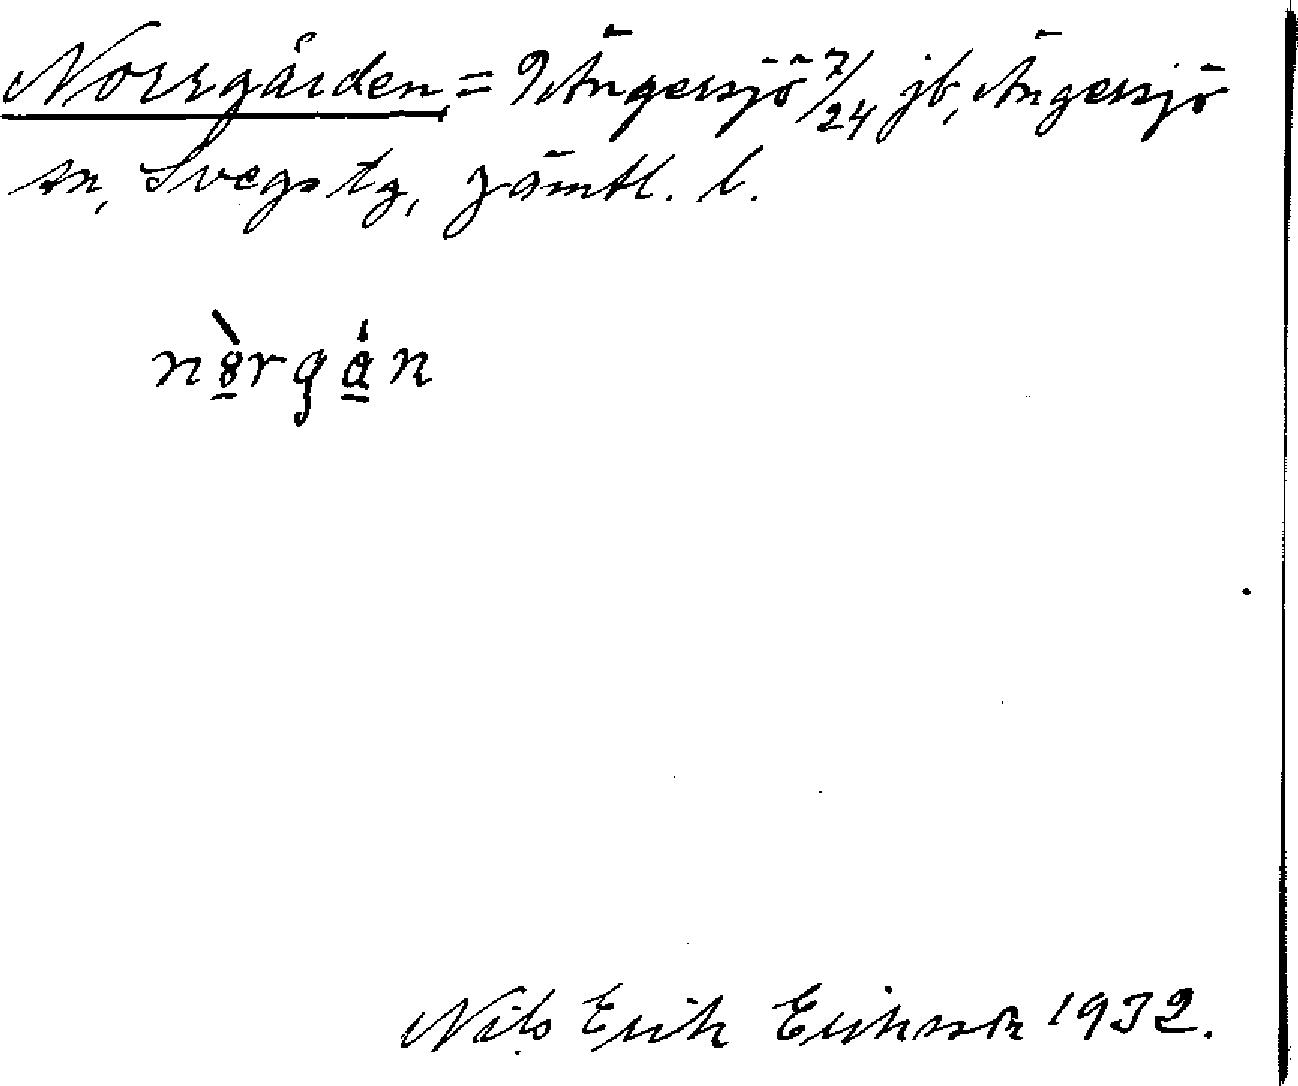 Norrgården = i Ängersjö 7/24 jb, Ängersjö
sn, Svegs tg, Jämtl. l.
nòrgån
Nils Erik Eriksson 1932.